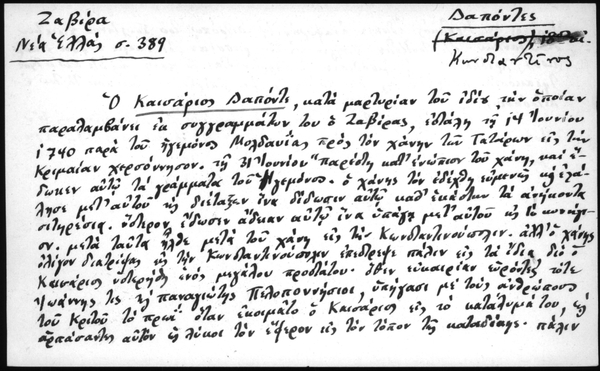 Ζαβίρα
Νέα Ἑλλάς σ. 389
Δαπόντες
(Καισάριος)
Κωνσταντῖνος
Ὁ Καισάριος Δαπόντε, κατὰ μαρτυρίαν τοῦ ἰδίου τὴν ὁποίαν
παραλαμβάνει ἐκ συγγραμμάτων του ὁ Ζαβίρας, ἐστάλη τῇ 14 Ἰουνίου
1740 παρὰ τοῦ ἡγεμόνος Μολδαυΐας πρὸς τὸν χάνην τῶν Τατάρων εἰς τὴν
Κριμαίαν χερσόννησον. τῇ 31 Ἰουνίου "παρέστη κατ' ἐνώπιον τοῦ χάνη, καὶ ἔ-
δωκεν αὐτῷ τὰ γράμματα τοῦ Ἡγεμόνος. ὁ χάνης τὸν ἐδέχθη εὐμενῶς καὶ ἐλά-
λησε μετ' αὐτοῦ καὶ διέταξεν ἵνα δίδωσιν αὐτῷ καθ' ἑκάστην τὰ ἀνήκοντα
σιτηρέσια. ὕστερον ἔδωσεν ἄδειαν αὐτῷ ἵνα ὑπάγῃ μετ' αὐτοῦ εἰς τὸ κυνήγι-
ον. μετὰ ταῦτα ἦλθε μετὰ τοῦ χάνη εἰς τὴν Κωνσταντινούπολιν. ἀλλ' ὁ χάνης
ὀλίγον διατρίψας εἰς τὴν Κωνσταντινούπολιν ἐπέστρεψε πάλιν εἰς τὰ ἴδια, διὸ ὁ
Καισάριος ὑστερήθη ἑνὸς μεγάλου προστάτου. ὅθεν εὐκαιρίαν εὑρόντες τότε
Ἰωάννης τις καὶ Παναγιώτης Πελοποννήσιοι, ὑπήγασι μὲ τοὺς ἀνθρώπους
τοῦ Κριτοῦ τὸ πρωῒ ὅταν ἐκοιμᾶτο ὁ Καισάριος εἰς τὸ κατάλυμά του, καὶ
ἁρπάσαντες αὐτὸν ὡς λύκοι τὸν ἔφερον εἰς τὸν τόπον τῆς καταδίκης. πάλιν